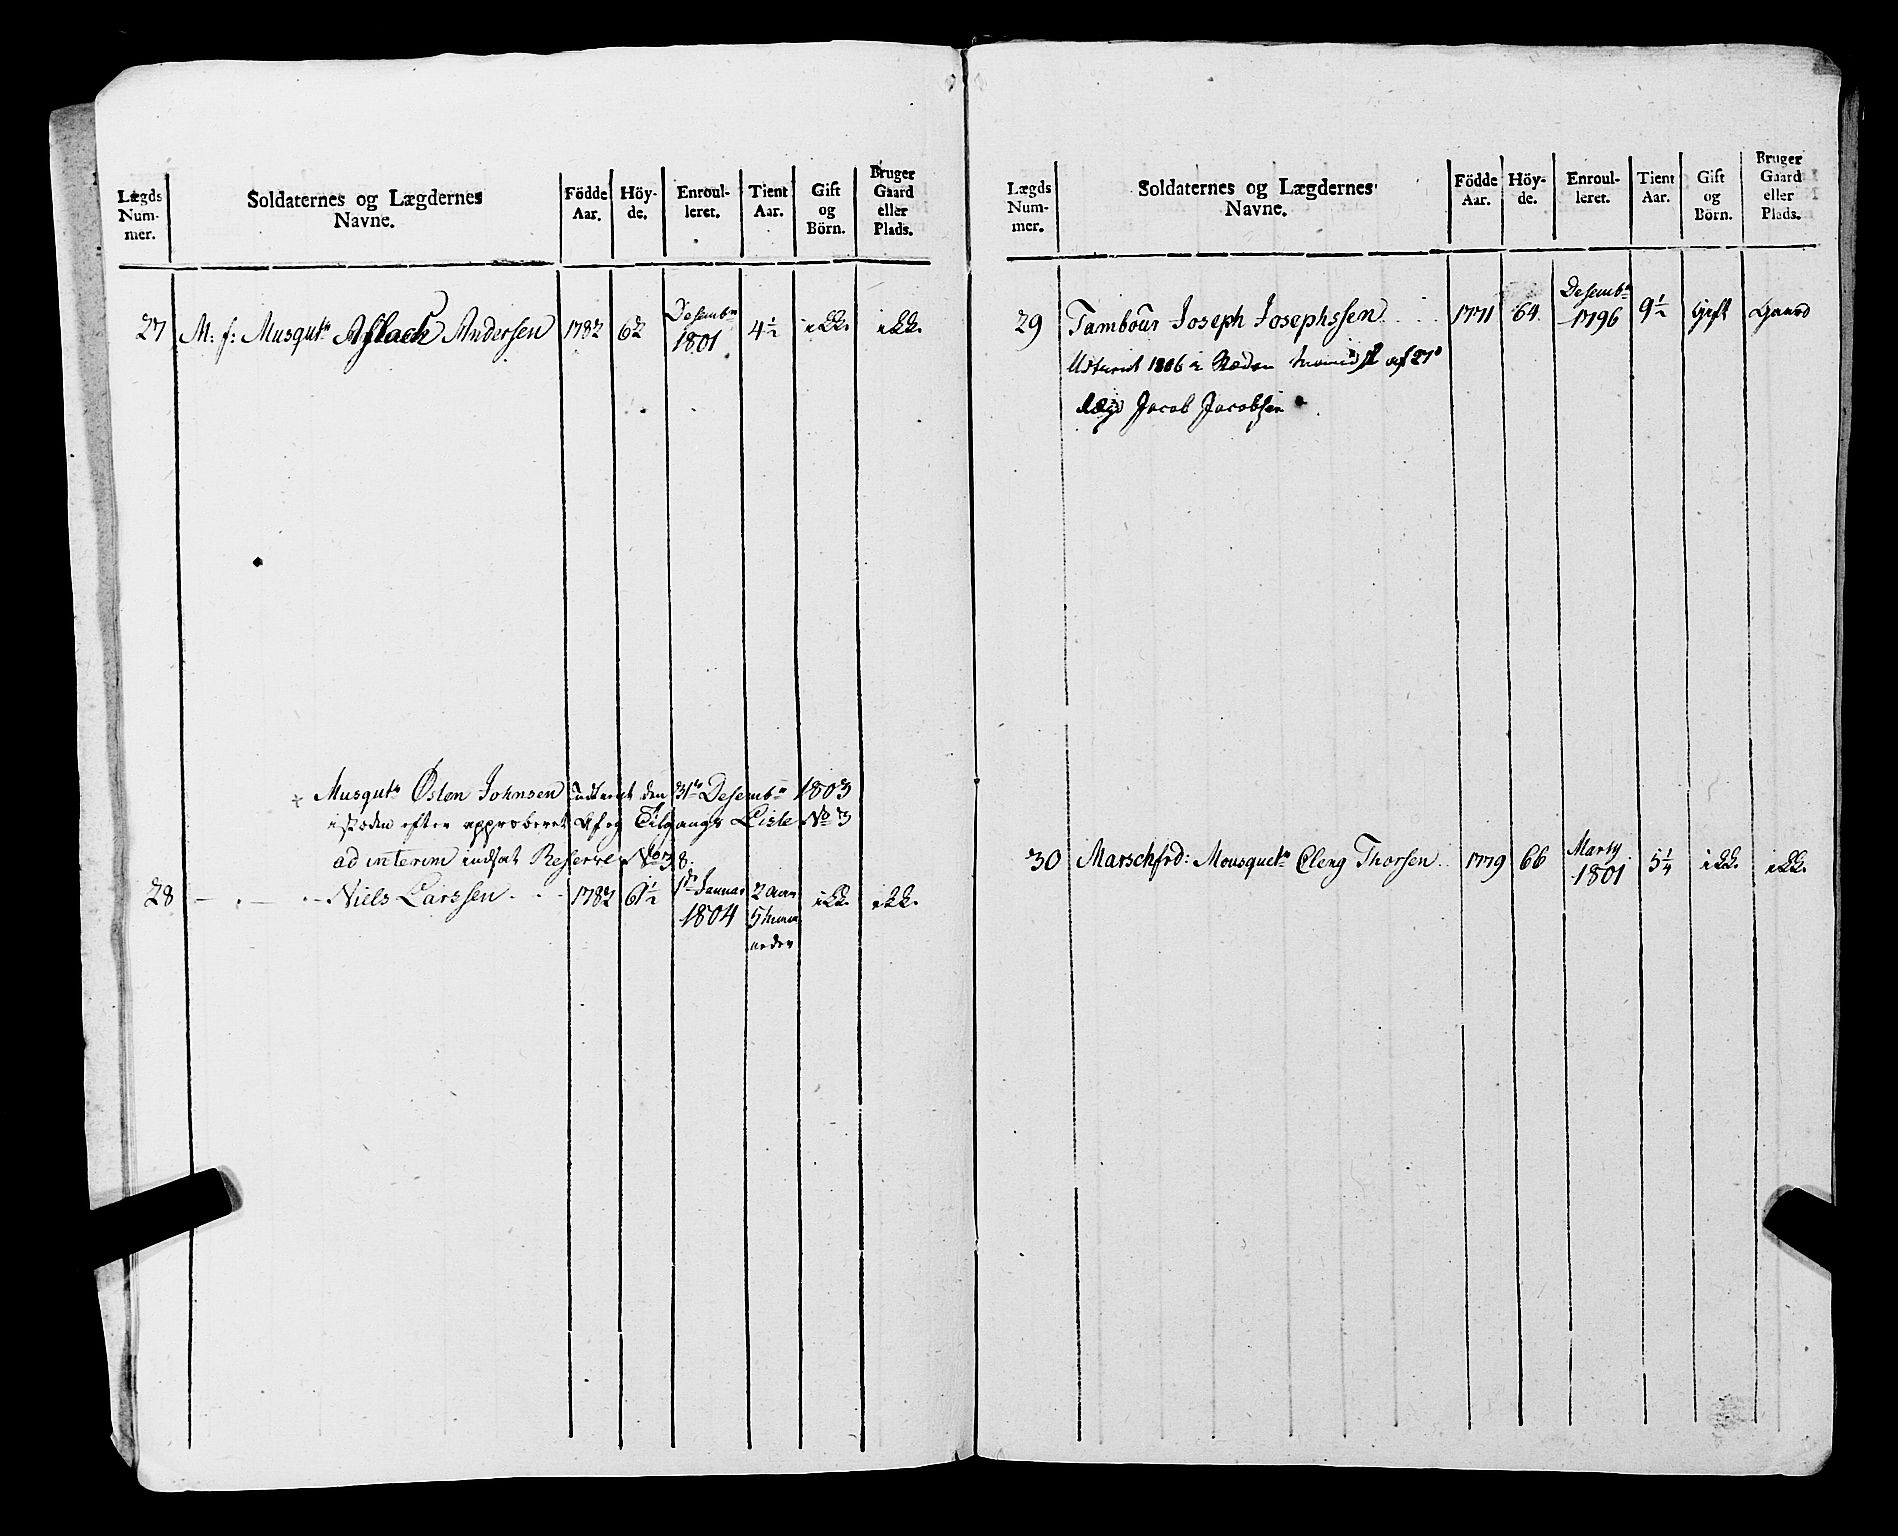 Lægds Num- mer.
Soldaternes og Lægdernes Navne.
Födde Aar.
Höy- de.
Enroul- leret.
Tient Aar.
Gift og Börn.
Bruger Gaard eller Plads.
27 M: f: Musqutr Aslach Andersen 1782 62 Desembr 1801 4½ ikke ikke
Musqutr Östen Johnsen Indteret den 31te Desembr 1803
istæden efter approberet Af og Tilgangs Liste No 3
ad interim indsat Reserve No 38.
28 — . — . . – Niels Larssen . . . 1782 61½ 1te Januar 1804 2 aar 5 maa neder ikke ikke
Lægds Num- mer.
Soldaternes og Lægdernes Navne.
Födde Aar.
Höy- de.
Enroul- leret.
Tient Aar.
Gift og Börn.
Bruger Gaard eller Plads.
29 Tambour Joseph Josephssen 1771 64 Desembr 1796 9½ Gift Gaard
1806 i Stæden af 27de
Lægd Jacob Jacobsen
30 Marschfrd: Mousquetr Eleng Thorsen 1779 66 Marty 1801 5¼ ikke ikke